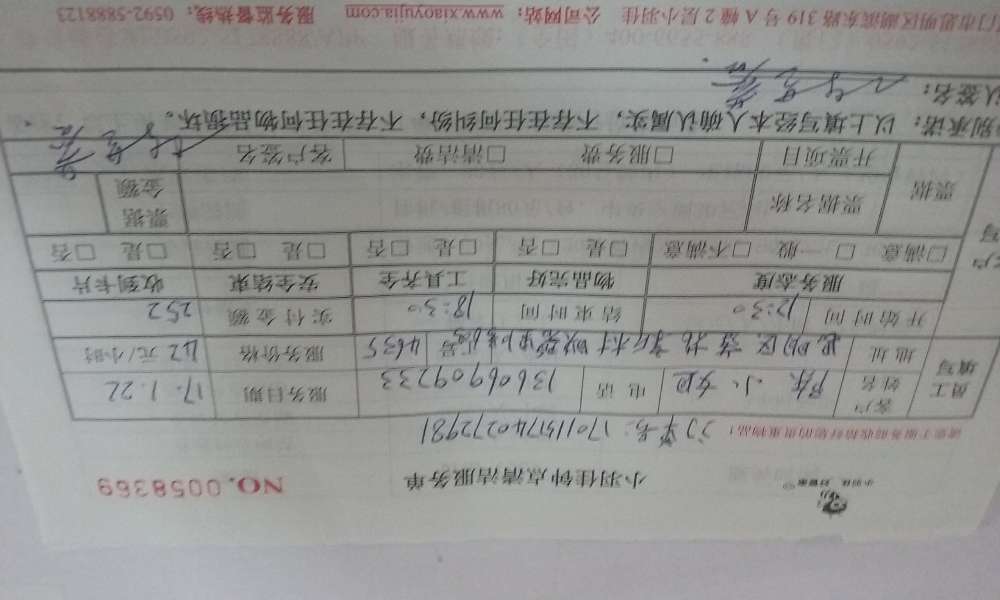 小羽佳 好管家
小羽佳钟点清洁服务单 NO.0058369
订单号：1701151740272981
请索于服务前收拾好您的贵重物品！
员工填写 客户姓名 陈小姐 电话 13606909233 服务日期 17.1.22
地址 服务价格 42元/小时
开始时间 12:30 结束时间 18:30 实付金额 252
服务态度 物品完好 工具齐全 安全结束 收到卡片
□满意 □一般 □不满意 □是 □否 □是 □否 □是 □否 □是 □否
票据 票据名称 票据金额
开票项目 □服务费 □清洁费 客户签名
别承诺：以上填写经本人确认属实，不存在任何纠纷，不存在任何物品损坏。
认签名：
门市思明区湖滨东路319号A幢2层小羽佳 公司网站：www.xiaoyujia.com 服务监督热线：0592-5888123